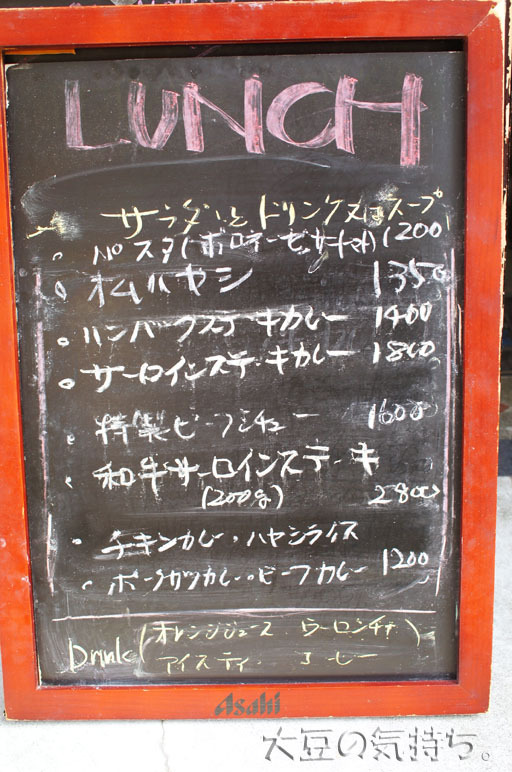 LUNCH
サラダとドリンク又はスープ
・パスタ(ボロネーゼ, 1200
・オムハヤシ 1350
・ハンバーグステーキカレー 1400
・サーロインステーキカレー 1800
・特製ビーフシチュー 1600
・和牛サーロインステーキ
(200g) 2800
・チキンカレー・ハヤシライス
・ポークカツカレー・ビーフカレー 1200
Drink (オレンジジュース ウーロンチャ
アイスティ コーヒー
Asahi
大豆の気持ち。